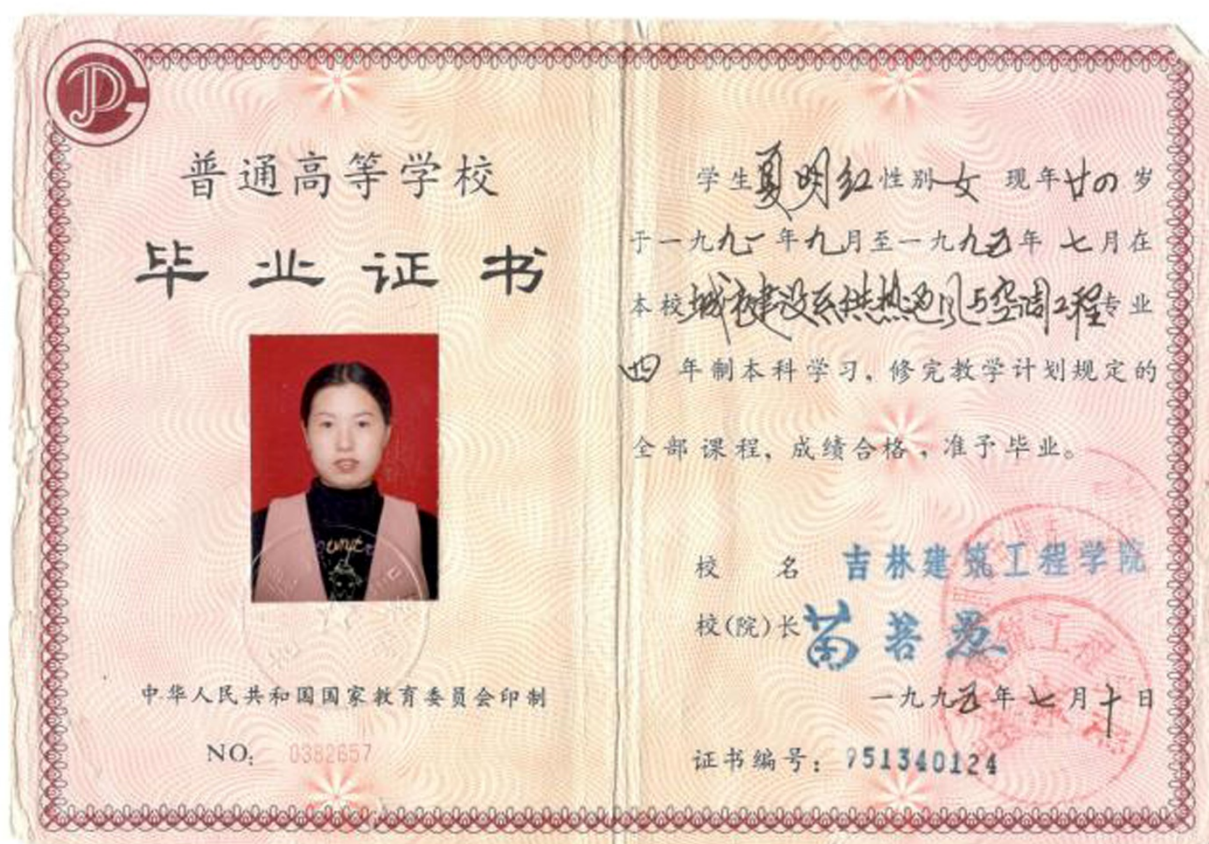 普通高等学校
毕业证书
中华人民共和国国家教育委员会印制
NO: 0382657
学生夏明红性别女 现年廿四岁
于一九九一年九月至一九九五年 七月在
本校城市建设系供热通风与空调工程专业
四 年制本科学习, 修完教学计划规定的
全部课程, 成绩合格, 准予毕业。
校 名 吉林建筑工程学院
校(院)长 苗若愚
一九九五年七月十日
证书编号: 951340124